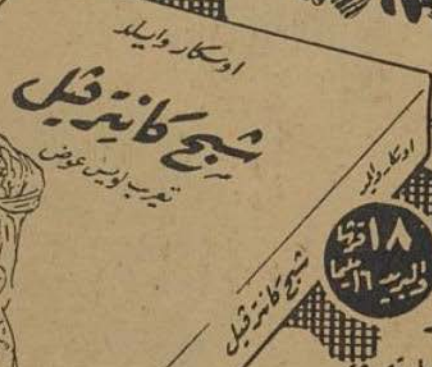 اوسكار وايلد
شبح كانترفيل
تعريب لويس عوض
اوسكار وايلد
شبح كانترفيل
١٨ قرشا
والبريد ١٦ مليما